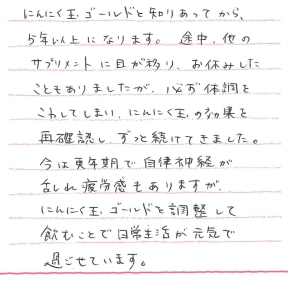 にんにく玉ゴールドと知りあってから、
5年以上になります。途中、他の
サプリメントに目が移り、お休みした
こともありましたが、必ず体調を
こわしてしまい、にんにく玉の効果を
再確認し、ずっと続けてきました。
今は更年期で自律神経が
乱れ疲労感もありますが、
にんにく玉ゴールドと調整して
飲むことで日常生活が元気で
過ごせています。